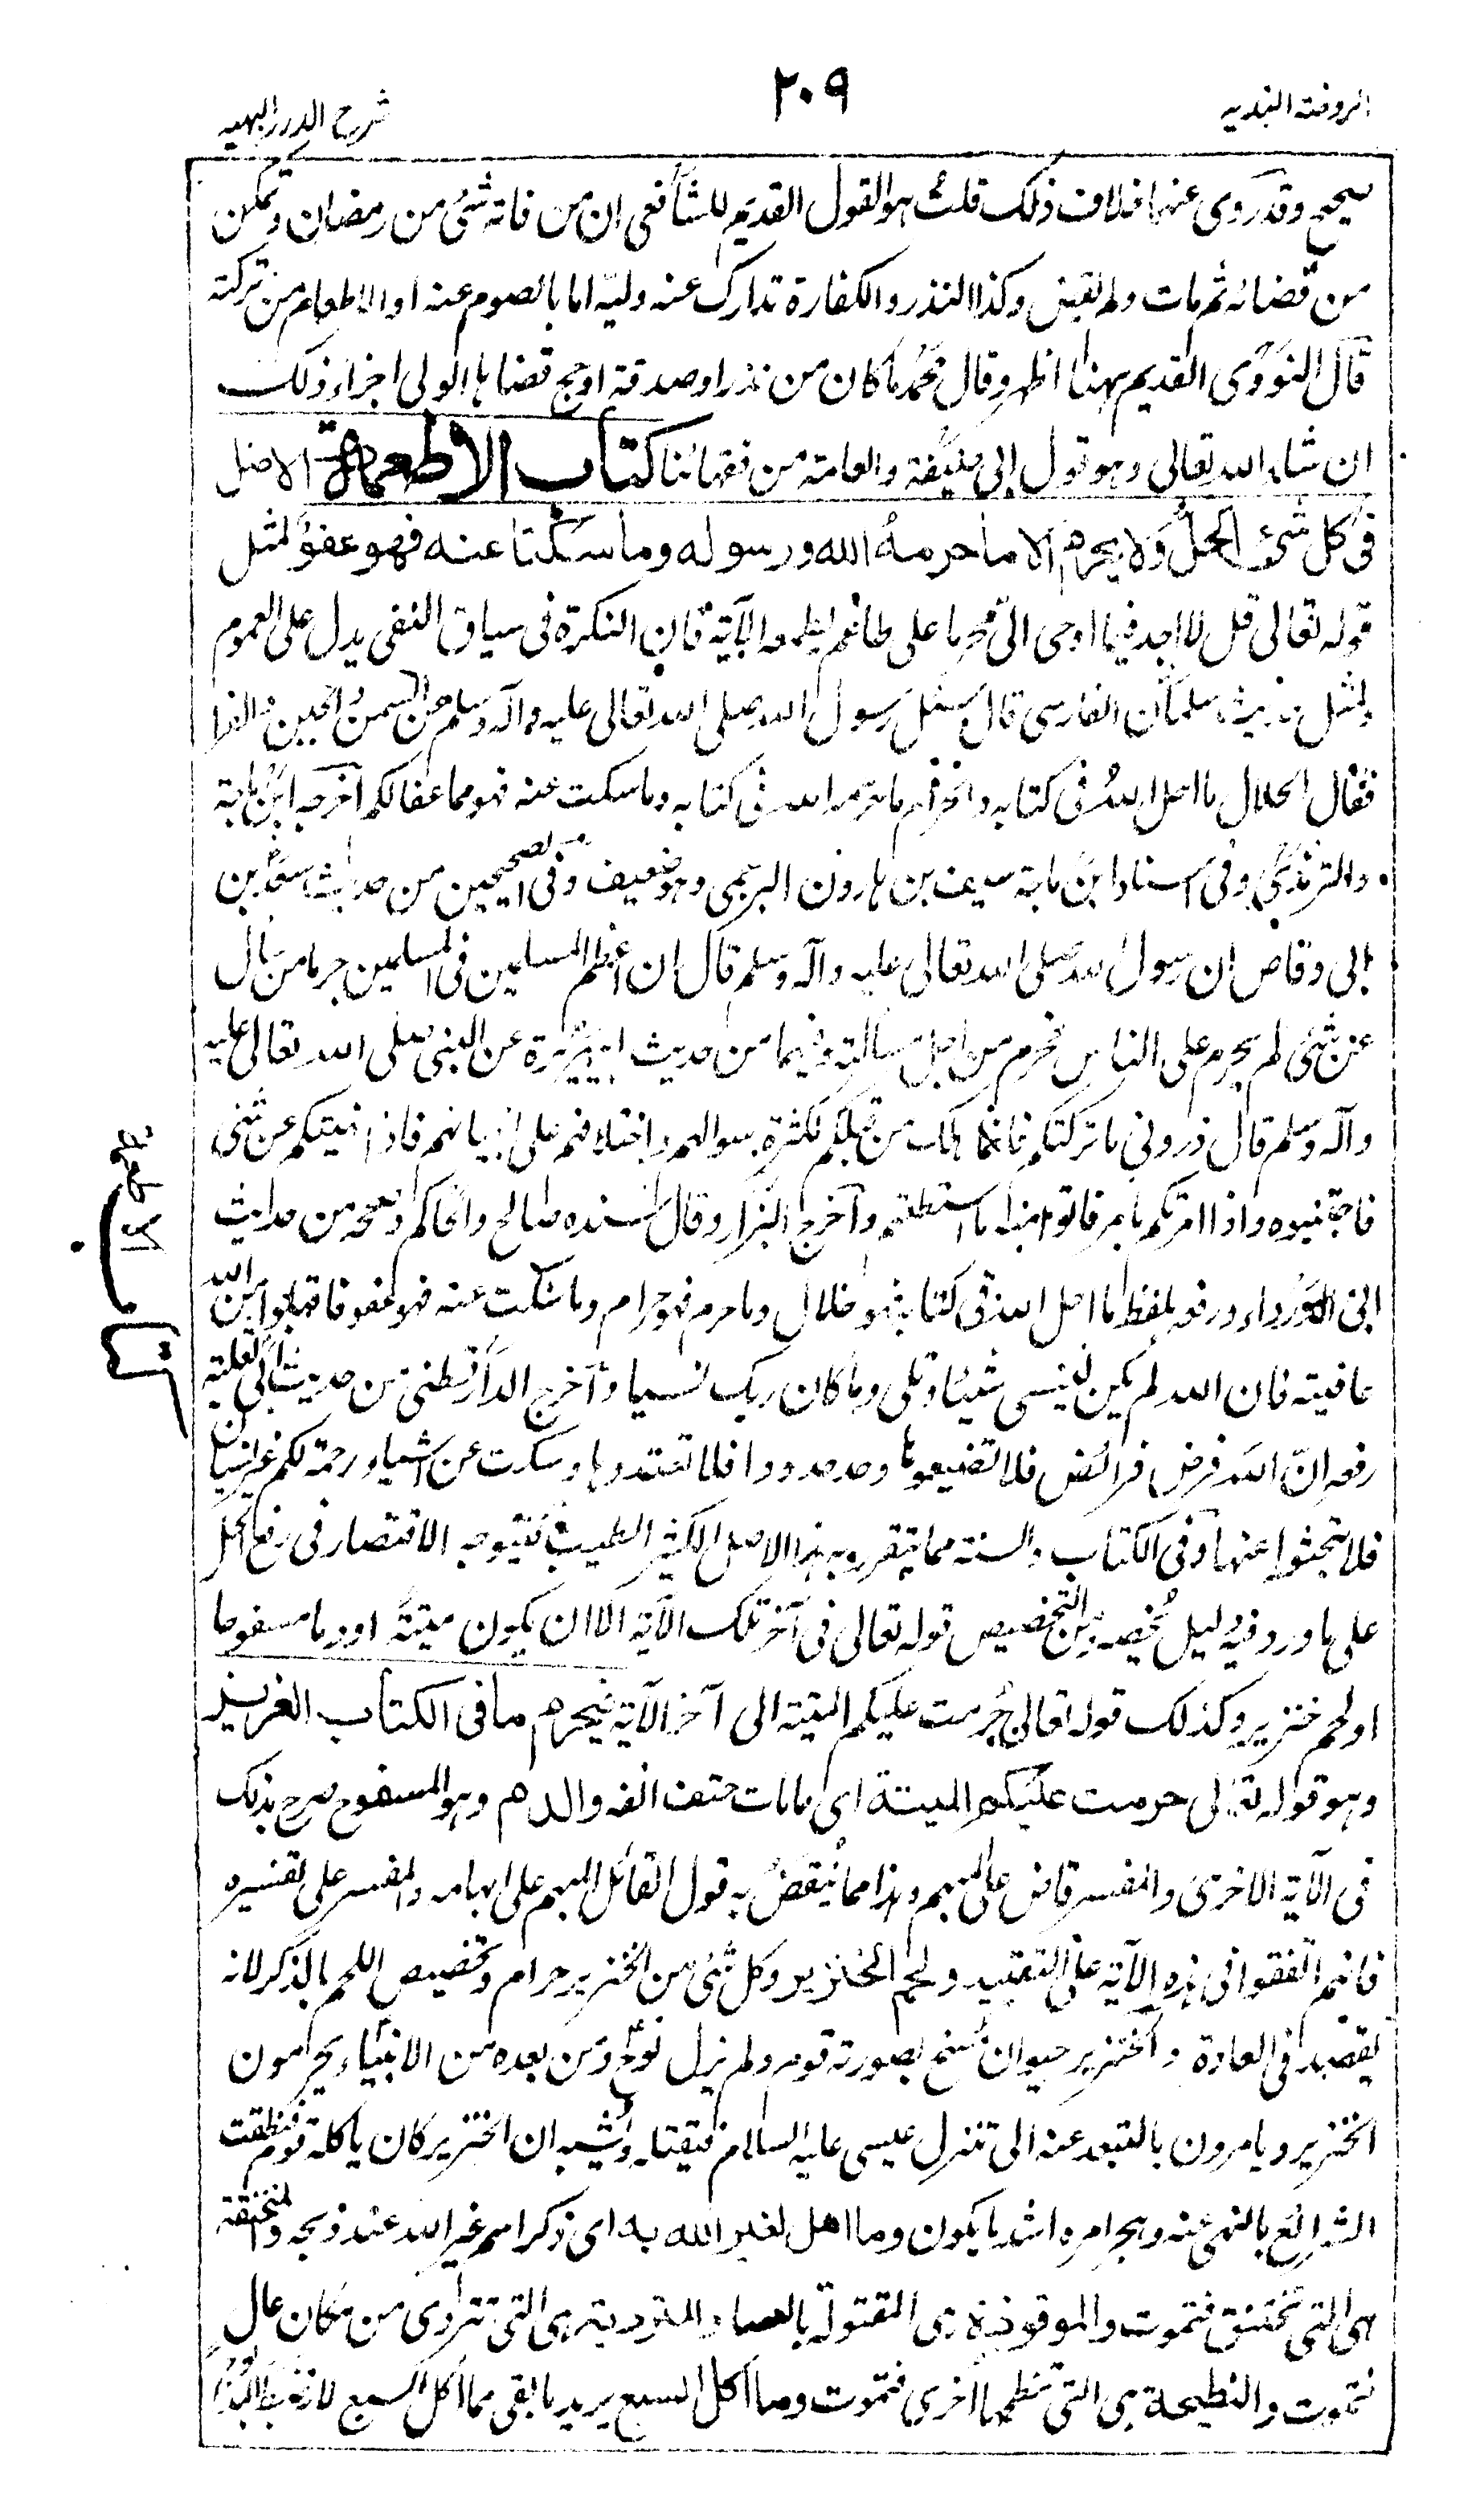 الروضة الندیه
۲۰۹
شرح الدرر البهیه
صحیح وقد روی عنها خلاف ذلک قلت هو القول القدیم للشافعی ان من فاته شئ من رمضان وتمکن
من قضائه ثم مات ولم یقض وکذا النذر والکفارة تدارک عنه ولیه اما بالصوم عنه او الاطعام من ترکته
قال النووی القدیم ههنا اظهر وقال محمد ما کان من نذر او صدقة او حج قضاها الولی اجزاء ذلک
ان شاء الله تعالی وهو قول ابی حنیفة والعامة من فقهائنا کتاب الاطعمة الاصل
فی کل شئ الحل ولا یحرم الا ما حرمه الله ورسوله وما سکتا عنه فهو عفو لمثل
قوله تعالی قل لا اجد فیما اوحی الی محرما علی طاعم یطعمه الآیة فان النکرة فی سیاق النفی یدل علی العموم
ولمثل حدیث سلمان الفارسی قال سئل رسول الله صلی الله تعالی علیه وآله وسلم عن السمن والجبن والفرا
فقال الحلال ما احل الله فی کتابه والحرام ما حرم الله فی کتابه وما سکت عنه فهو مما عفا لکم اخرجه ابن ماجة
والترمذی وفی اسناد ابن ماجة سیف بن هارون البرجمی وهو ضعیف وفی الصحیحین من حدیث سعد بن
ابی وقاص ان رسول الله صلی الله تعالی علیه وآله وسلم قال ان اعظم المسلمین فی المسلمین جرما من سال
عن شئ لم یحرم علی الناس فحرم من اجل مسألته وفیهما من حدیث ابی هریرة عن النبی صلی الله تعالی علیه
وآله وسلم قال ذرونی ما ترکتکم فانما هلک من قبلکم بکثرة سوالهم واختلافهم علی انبیائهم فاذا نهیتکم عن شئ
فاجتنبوه واذا امرتکم بامر فاتوا منه ما استطعتم واخرج البزار وقال سنده صالح والحاکم وصححه من حدیث
ابی الدرداء ورفعه بلفظ ما احل الله فی کتابه فهو حلال وما حرم فهو حرام وما سکت عنه فهو عفو فاقبلوا من الله
عافیته فان الله لم یکن لینسی شیئا وتلی وما کان ربک نسیا واخرج الدارقطنی من حدیث ابی ثعلبة
رفعه ان الله فرض فرائض فلا تضیعوها وحد حدودا فلا تعتدوها وسکت عن اشیاء رحمة لکم غیر نسیان
فلا تبحثوا عنها وفی الکتاب والسنة مما یتقرر به هذا الاصل الکثیر الطیب فیتوجه الاقتصار فی رفع الحل
علی ما ورد فیه دلیل یخصه ومن التخصیص قوله تعالی فی آخر تلک الآیة الا ان یکون میتة او دما مسفوحا
او لحم خنزیر وکذلک قوله تعالی حرمت علیکم المیتة الی آخر الآیة فیحرم ما فی الکتاب العزیز
وهو قوله تعالی حرمت علیکم المیتة ای ما مات حتف انفه والدم وهو المسفوح صرح بذلک
فی الآیة الاخری والمفسر قاض علی المبهم وهذا مما ینقض به قول القائل المبهم علی ابهامه والمفسر علی تفسیره
فانهم اتفقوا فی هذه الآیة علی التقیید ولحم الخنزیر وکل شئ من الخنزیر حرام وتخصیص اللحم بالذکر لانه
یقصد فی العادة والخنزیر حیوان مسخ بصورته قوم ولم یزل نوح ومن بعده من الانبیاء یحرمون
الخنزیر ویامرون بالتبعد عنه الی تنزل عیسی علیه السلام فیقتله ویشبه ان الخنزیر کان یاکله قوم فنطقت
الشرائع بالنهی عنه وهجر امره اشد ما یکون وما اهل لغیر الله به ای ذکر اسم غیر الله عند ذبحه والمنخنقة
هی التی تختنق فتموت والموقوذة هی المقتولة بالعصا والمتردیة هی التی تتردی من مکان عال
فتموت والنطیحة هی التی تنطحها اخری فتموت وما اکل السبع یرید ما بقی مما اکل السبع لانه
کتاب الاطعمة